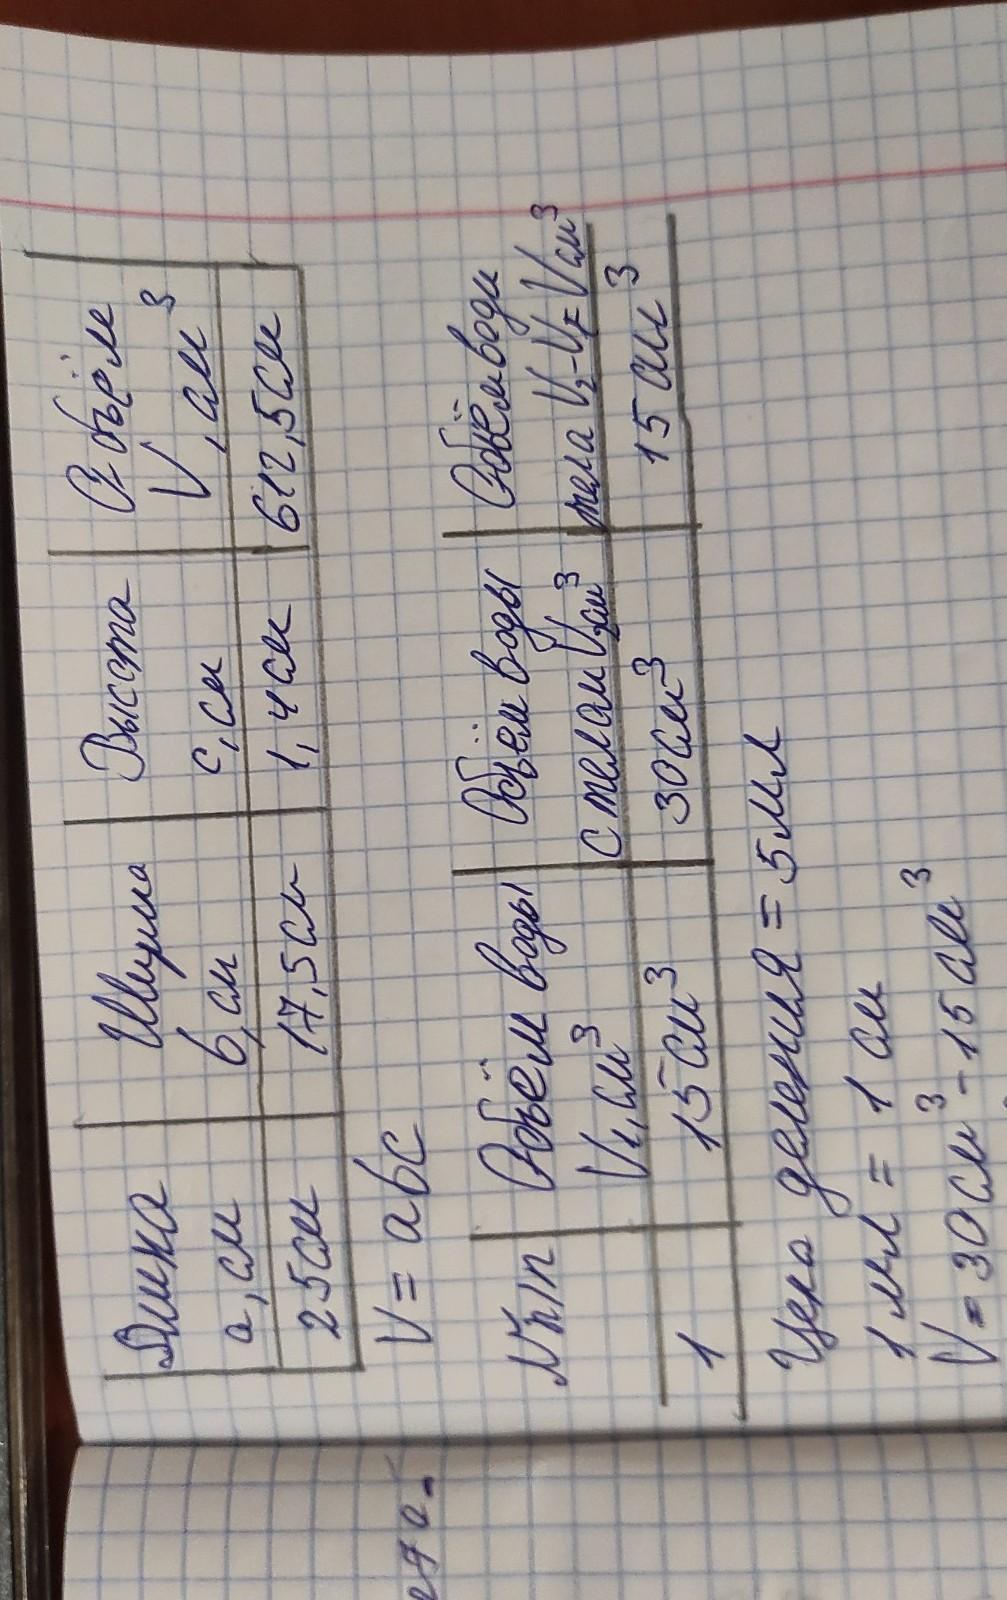 Длина Ширина Высота Объём
а, см b, см c, см V, см³
25см 17,5см 1,4см 612,5см
V = abc
№ п/п Объём воды Объём воды Объём води
V₁, см³ с телом V₂см³ тела V₂-V₁=Vсм³
1 15см³ 30см³ 15см³
Цена деления = 5мл
1 мл = 1 см
V = 30см³ - 15см³